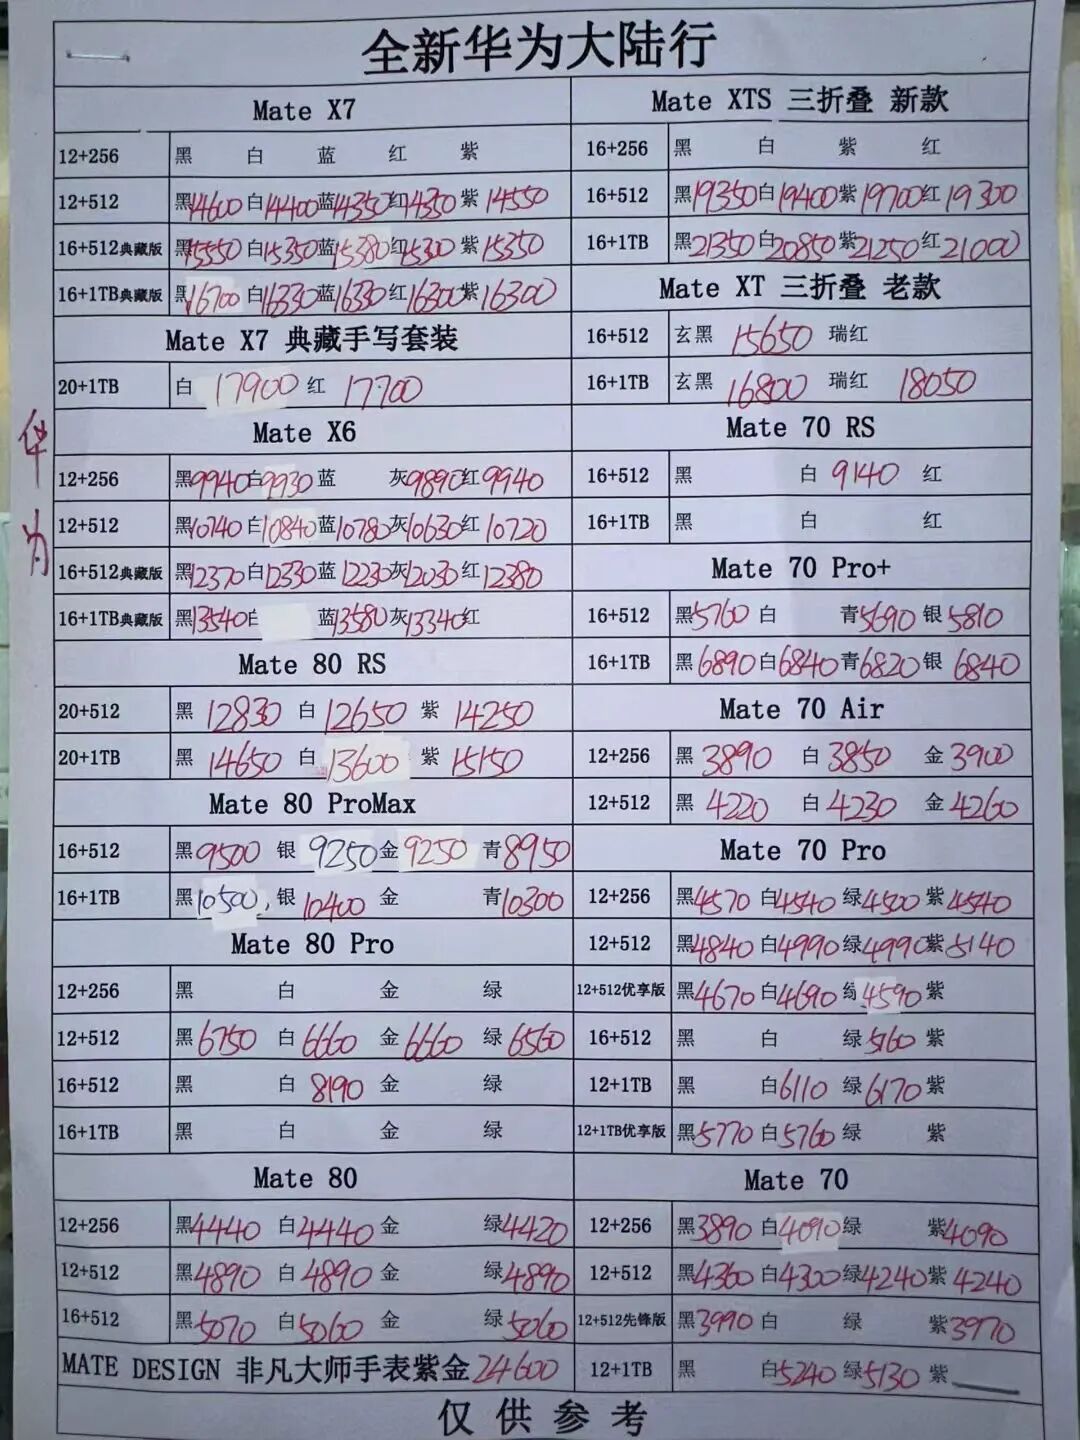 全新华为大陆行
华为
Mate X7
12+256 黑 白 蓝 红 紫
12+512 黑14600 白14400 蓝14350 红14350 紫14550
16+512典藏版 黑15550 白15350 蓝15380 红15300 紫15350
16+1TB典藏版 黑16700 白16330 蓝16330 红16300 紫16300
Mate X7 典藏手写套装
20+1TB 白 17900 红 17700
Mate X6
12+256 黑9940 白9930 蓝 灰9890 红9940
12+512 黑10740 白10840 蓝10780 灰10630 红10720
16+512典藏版 黑12370 白12330 蓝12230 灰12030 红12380
16+1TB典藏版 黑13540 白 蓝13580 灰13340 红
Mate 80 RS
20+512 黑 12830 白 12650 紫 14250
20+1TB 黑 14650 白 13600 紫 15150
Mate 80 ProMax
16+512 黑9500 银 9250 金 9250 青8950
16+1TB 黑10500, 银 10400 金 青10300
Mate 80 Pro
12+256 黑 白 金 绿
12+512 黑6750 白6660 金6660 绿6560
16+512 黑 白 8190 金 绿
16+1TB 黑 白 金 绿
Mate 80
12+256 黑4440 白4440 金 绿4420
12+512 黑4890 白4890 金 绿4890
16+512 黑5070 白5060 金 绿5060
MATE DESIGN 非凡大师手表紫金24600
Mate XTS 三折叠 新款
16+256 黑 白 紫 红
16+512 黑19350 白19400 紫19700 红19300
16+1TB 黑21350 白20850 紫21250 红21000
Mate XT 三折叠 老款
16+512 玄黑 15650 瑞红
16+1TB 玄黑 16800 瑞红 18050
Mate 70 RS
16+512 黑 白 9140 红
16+1TB 黑 白 红
Mate 70 Pro+
16+512 黑5760 白 青5690 银5810
16+1TB 黑6890 白6840 青6820 银 6840
Mate 70 Air
12+256 黑 3890 白 3850 金 3900
12+512 黑 4220 白 4230 金 4260
Mate 70 Pro
12+256 黑4570 白4540 绿4500 紫4540
12+512 黑4840 白4990 绿4990 紫5140
12+512优享版 黑4670 白4690 4590 紫
16+512 黑 白 绿5160 紫
12+1TB 黑 白6110 绿6170 紫
12+1TB优享版 黑5770 白5760 绿 紫
Mate 70
12+256 黑3890 白4090 绿 紫4090
12+512 黑4360 白4300 绿4240 紫4240
12+512先锋版 黑3990 白 绿 紫3970
12+1TB 黑 白5240 绿5130 紫
仅供参考